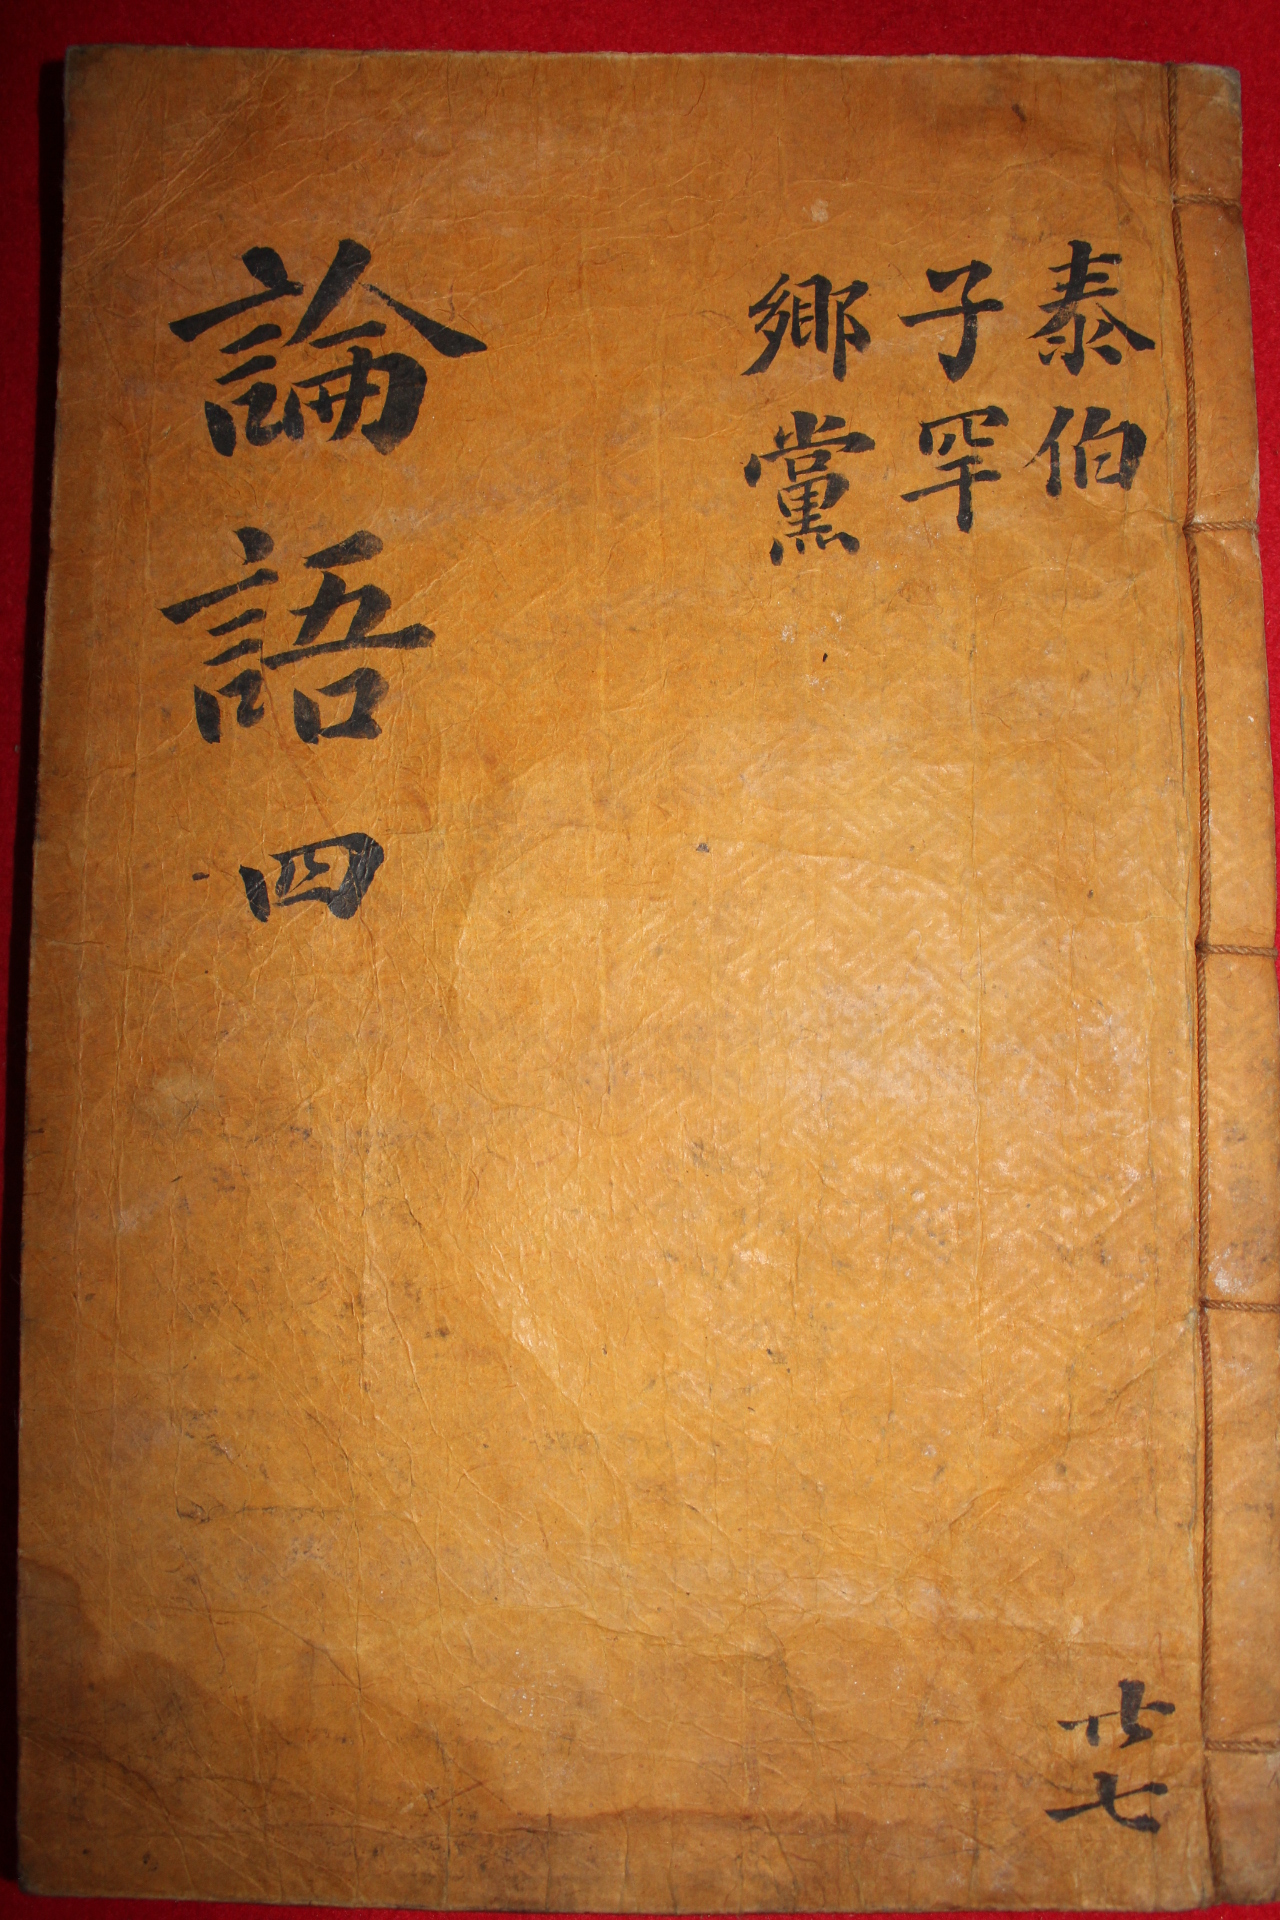 泰伯
子罕
鄉黨
論語四
廿七